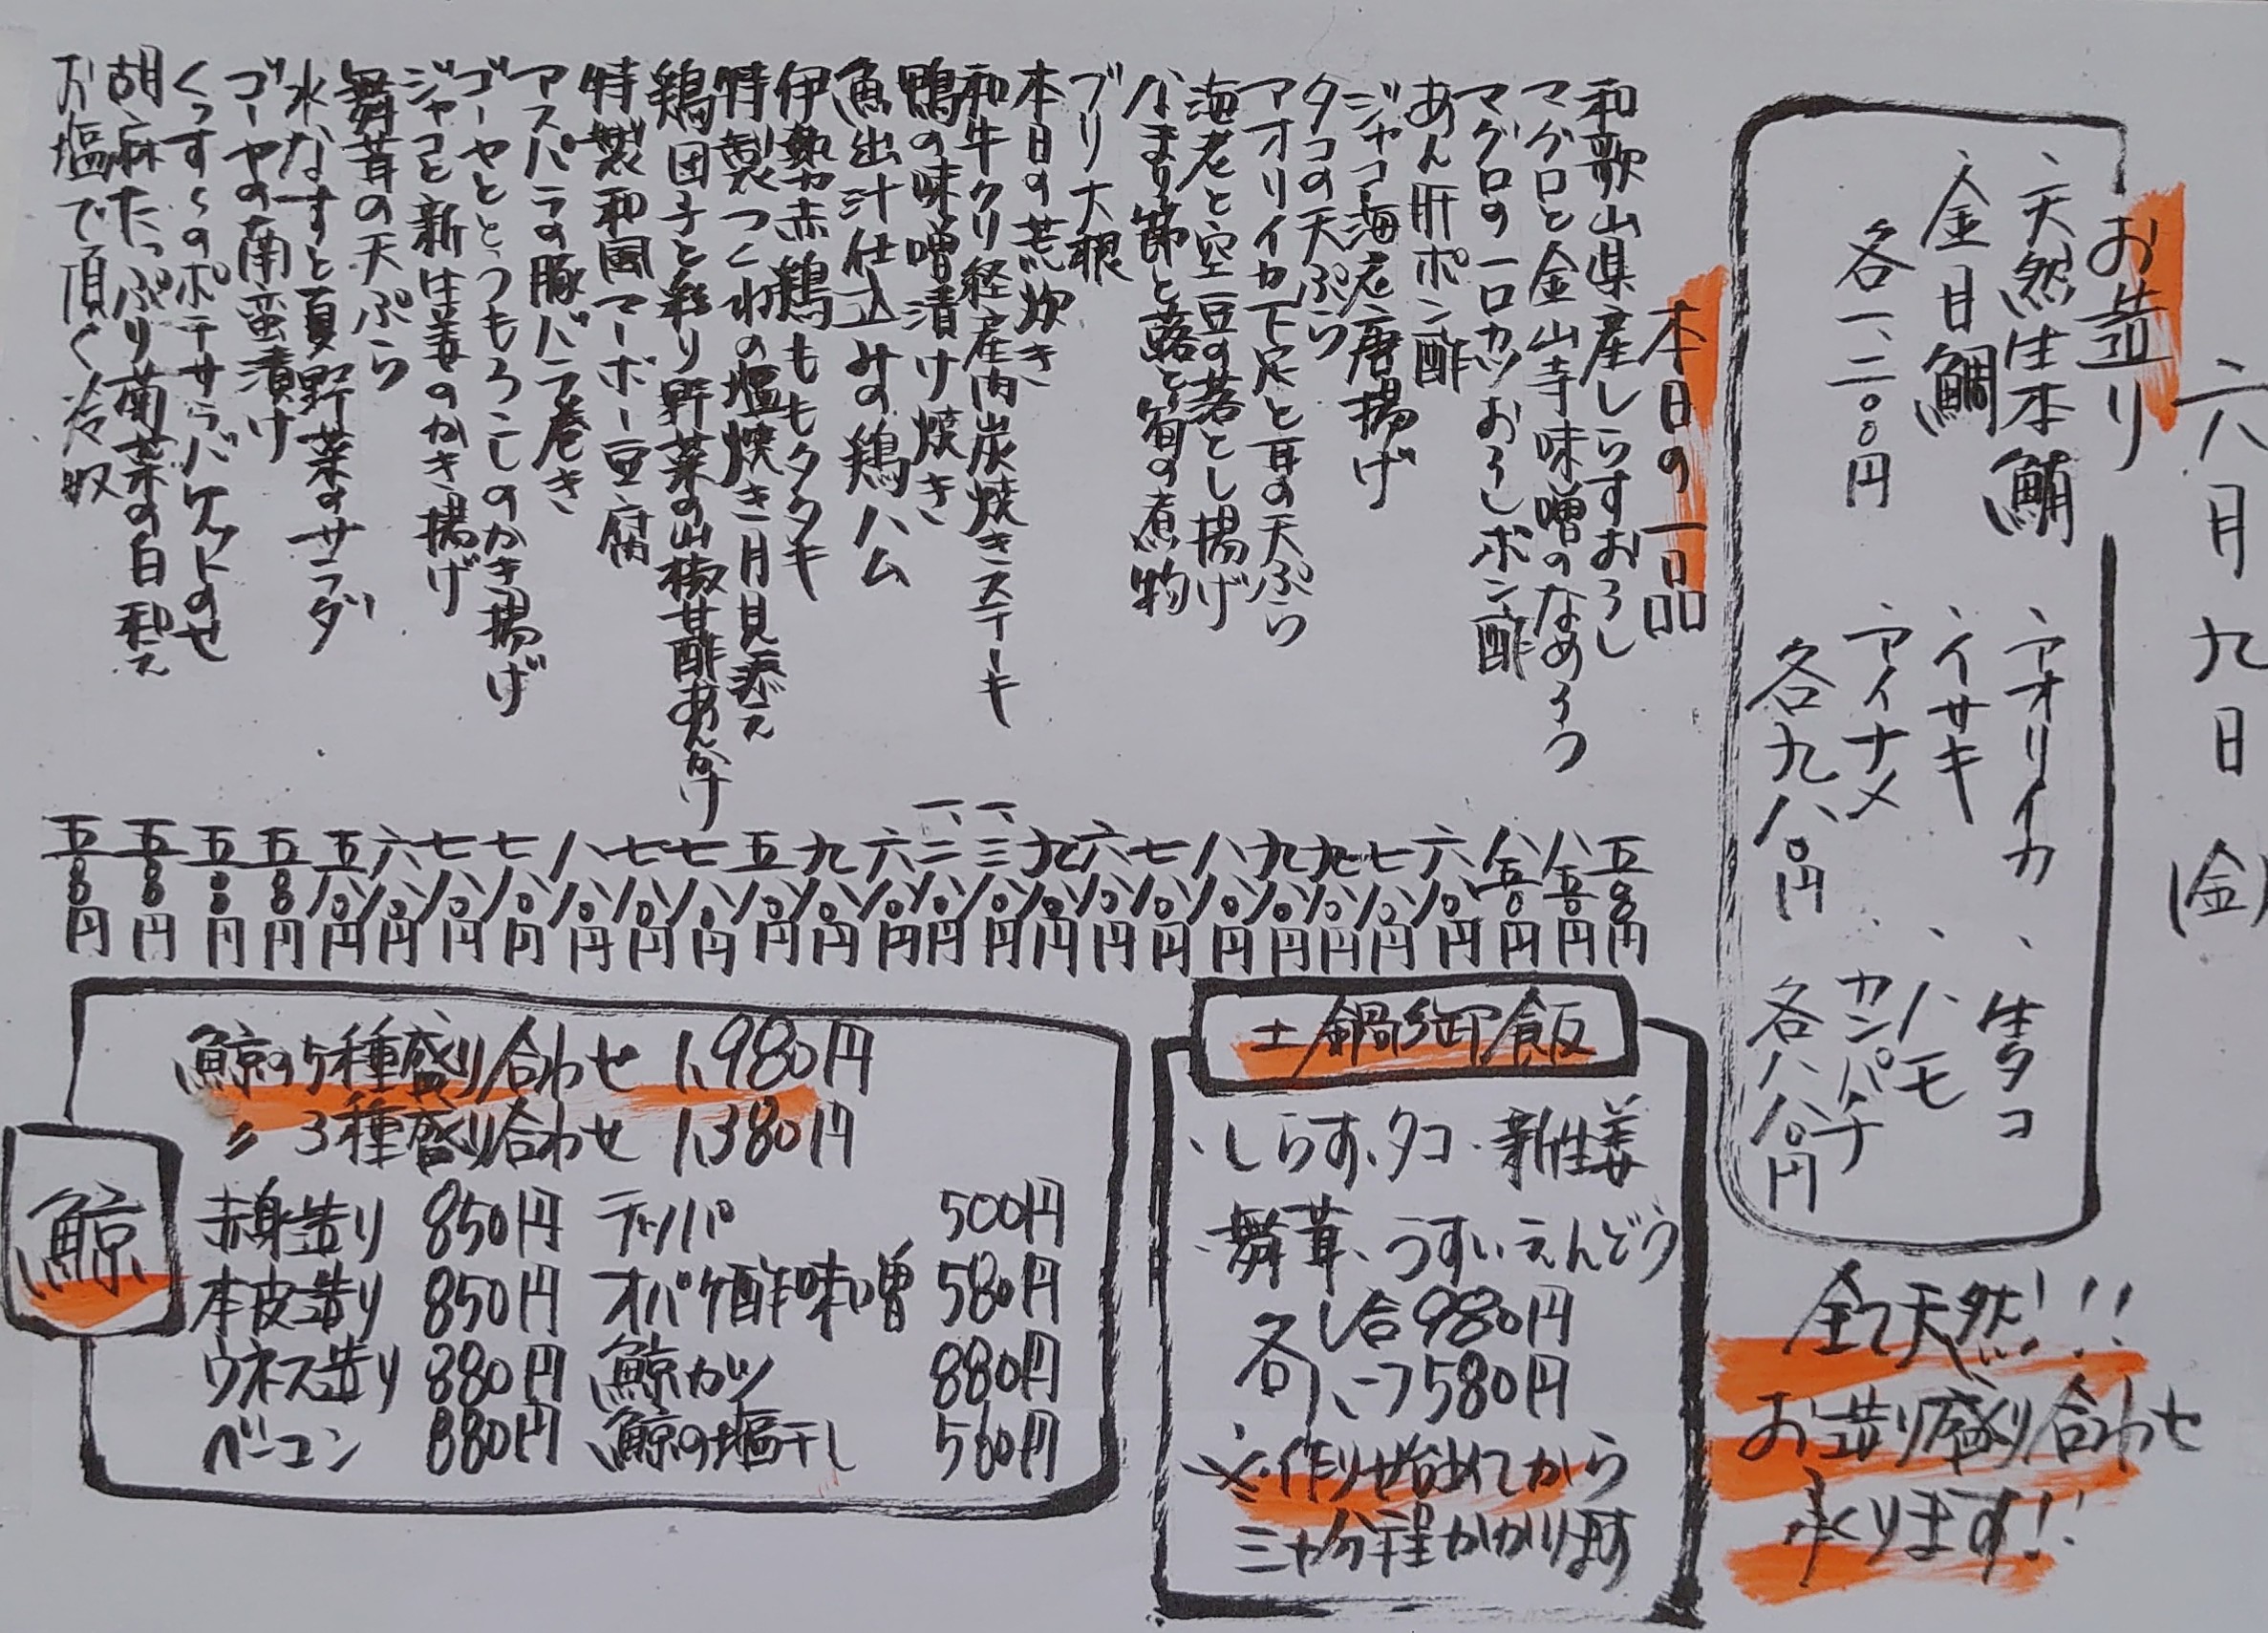 六月九日(金)
お造り
、天然生本鮪
、金目鯛
各一、二〇〇円
、アオリイカ
、イサキ
、アイナメ
各九八〇円
、生タコ
、ハモ
、カンパチ
各八八〇円
全て天然!!!
お造り盛り合わせ
承ります!!
本日の一品
和歌山県産しらすおろし 五八〇円
マグロと金山寺味噌のなめろう 八五〇円
マグロの一口カツおろしポン酢 八五〇円
あん肝ポン酢 六八〇円
ジャコ海老唐揚げ 七八〇円
タコの天ぷら 九八〇円
アオリイカ下足と耳の天ぷら 九八〇円
海老と空豆の落とし揚げ 八八〇円
なまり節と蕗と筍の煮物 七八〇円
ブリ大根 六八〇円
本日の荒炊き 九八〇円
和牛クリ経産肉炭焼きステーキ 一、三八〇円
鴨の味噌漬け焼き 一、二八〇円
魚出汁仕込みの鶏ハム 六八〇円
伊勢赤鶏ももタタキ 九八〇円
特製つくねの塩焼き月見添え 五八〇円
鶏団子と彩り野菜の山椒甘酢あんかけ 七八〇円
特製和風マーボー豆腐 七八〇円
アスパラの豚バラ巻き 八八〇円
ゴーヤととうもろこしのかき揚げ 七八〇円
ジャコと新生姜のかき揚げ 七八〇円
舞茸の天ぷら 六八〇円
水なすと夏野菜のサラダ 五八〇円
ゴーヤの南蛮漬け 五八〇円
くっすくのポテサラバケットのせ 五八〇円
胡麻たっぷり菊菜の白和え 五八〇円
お塩で頂く冷奴 五八〇円
土鍋御飯
、しらす、タコ、新生姜
、舞茸、うすいえんどう
各一合980円
各ハーフ580円
※作り始めてから
三十分程かかります
鯨
鯨の5種盛り合わせ 1,980円
〃 3種盛り合わせ 1,380円
赤身造り 850円 テッパ 500円
本皮造り 850円 オバケ酢味噌 580円
ウネス造り 880円 鯨カツ 880円
ベーコン 880円 鯨の塩干し 560円